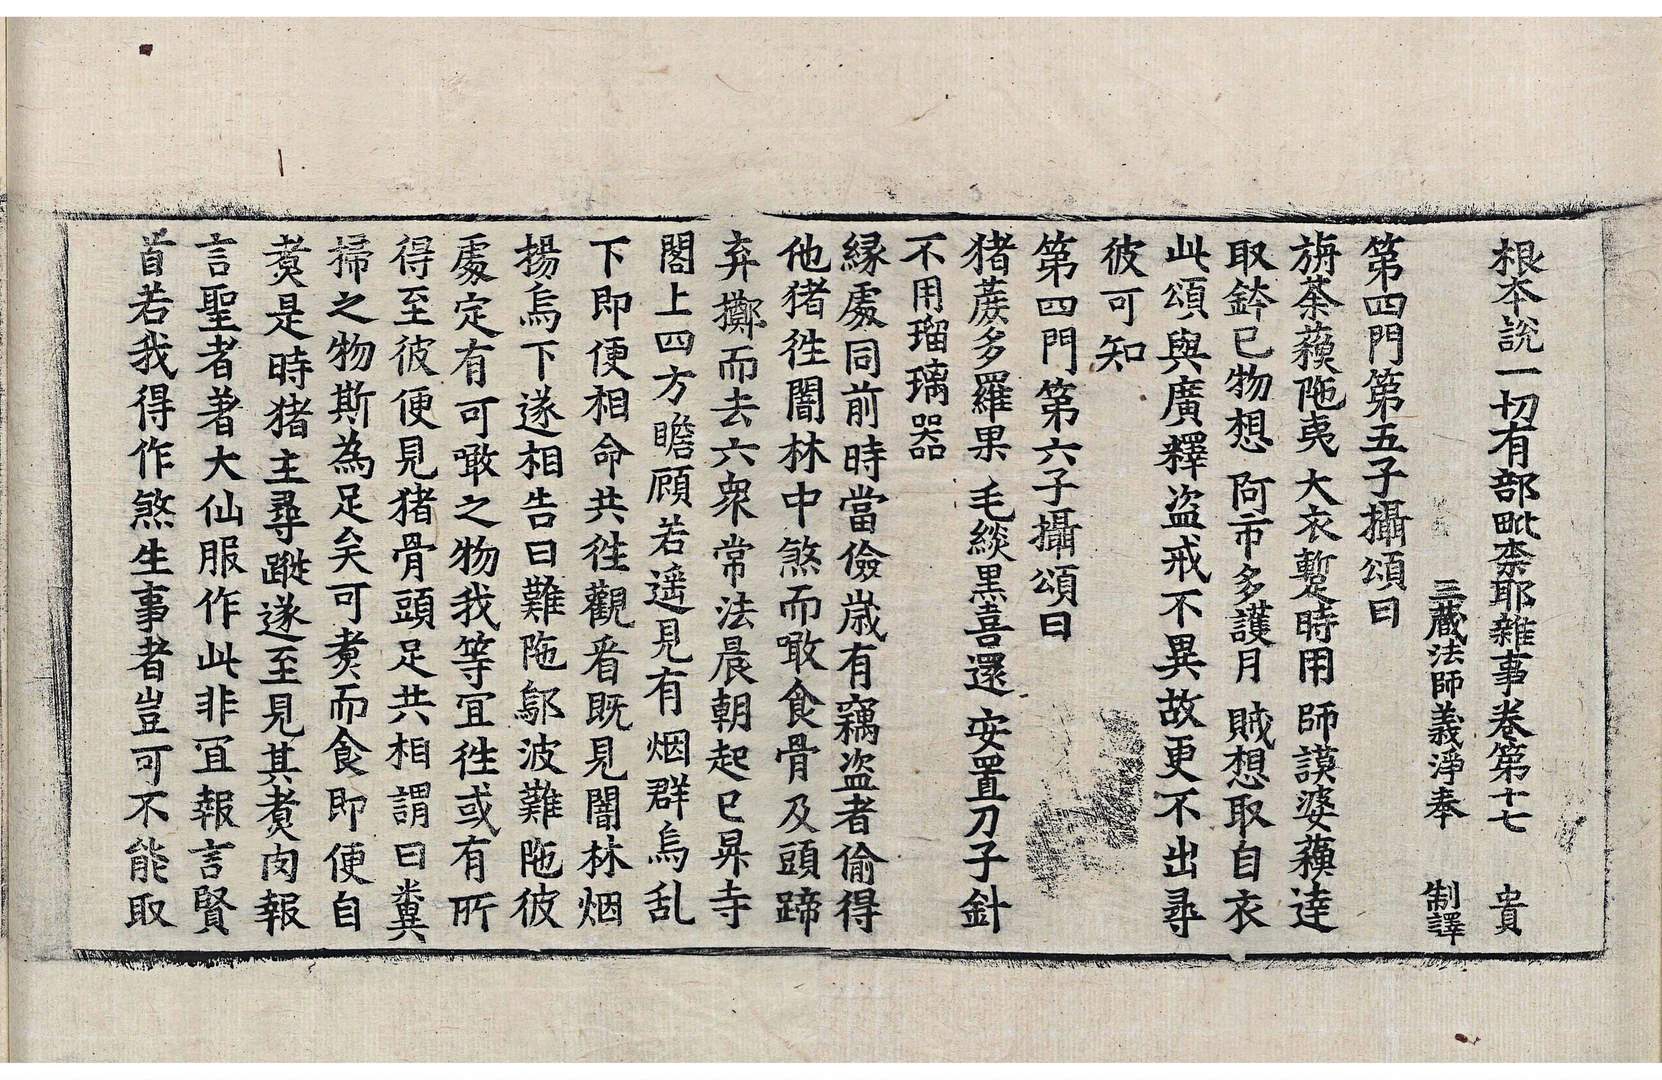 根本說一切有部毗柰耶雜事卷第十七 貴
三藏法師義淨奉 制譯
第四門第五子攝頌曰
旃荼蘇陁夷 大衣暫時用 師謨婆蘇達
取鉢已物想 阿市多護月 賊想取自衣
此頌與廣釋盜戒不異故更不出尋
彼可知
第四門第六子攝頌曰
猪蔗多羅果 毛緂黑喜還 安置刀子針
不用瑠璃器
緣處同前時當儉歲有竊盜者偷得
他猪徃闇林中煞而噉食骨及頭蹄
弃擲而去六衆常法晨朝起已昇寺
閣上四方瞻顧若遥見有烟群烏乱
下即便相命共徃觀看既見闇林烟
揚烏下遂相告曰難陁鄔波難陁彼
處定有可噉之物我等宜徃或有所
得至彼便見猪骨頭足共相謂曰糞
掃之物斯為足矣可煑而食即便自
煑是時猪主尋蹤遂至見其煑肉報
言聖者著大仙服作此非宜報言賢
首若我得作煞生事者豈可不能取